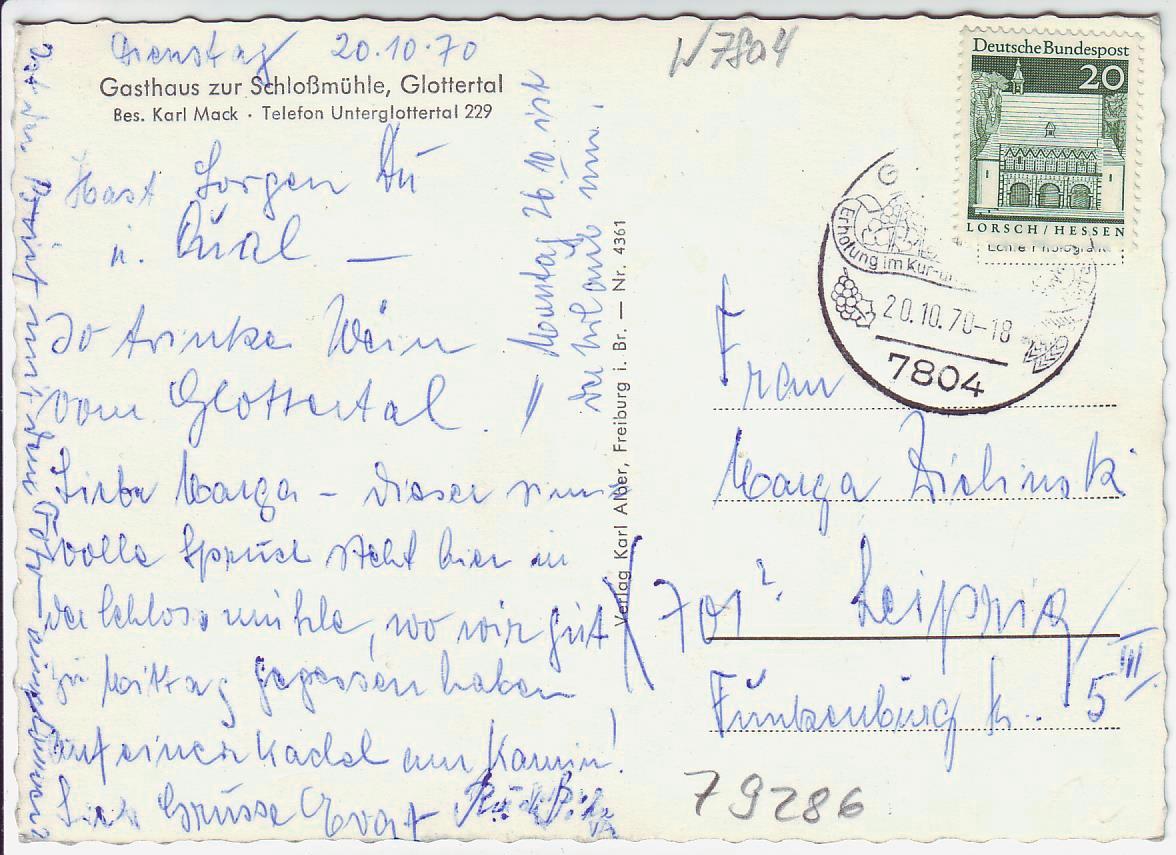 Dienstag 20.10.70
Gasthaus zur Schloßmühle, Glottertal
Bes. Karl Mack · Telefon Unterglottertal 229
Hast Sorgen Du
u. Qual —
So trinke Wein
vom Glottertal. //
Liebe Marga – dieser sinn
volle Spruch steht hier in
der Schlossmühle, wo wir gut
zu Mittag gegessen haben
auf einer Kachel am Kamin!
Grüsse
Montag 26.10. ist
der Urlaub um.
Verlag Karl Alber, Freiburg i. Br. — Nr. 4361
W 7804
Deutsche Bundespost
20
LORSCH/HESSEN
Erholung im Kur-
20.10.70-18
7804
Frau
Marga Zielinski
701 Leipzig
Funkenburgstr. 5 III
79286